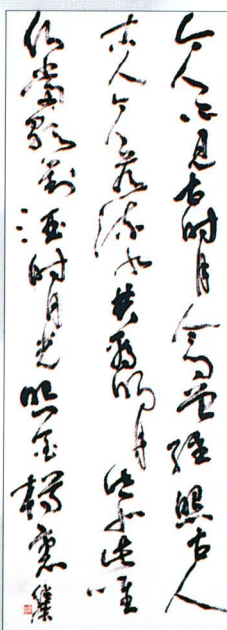 今人不见古时月今月曾经照古人
古人今人若流水共看明月皆如此唯
愿当歌对酒时月光照金樽裏